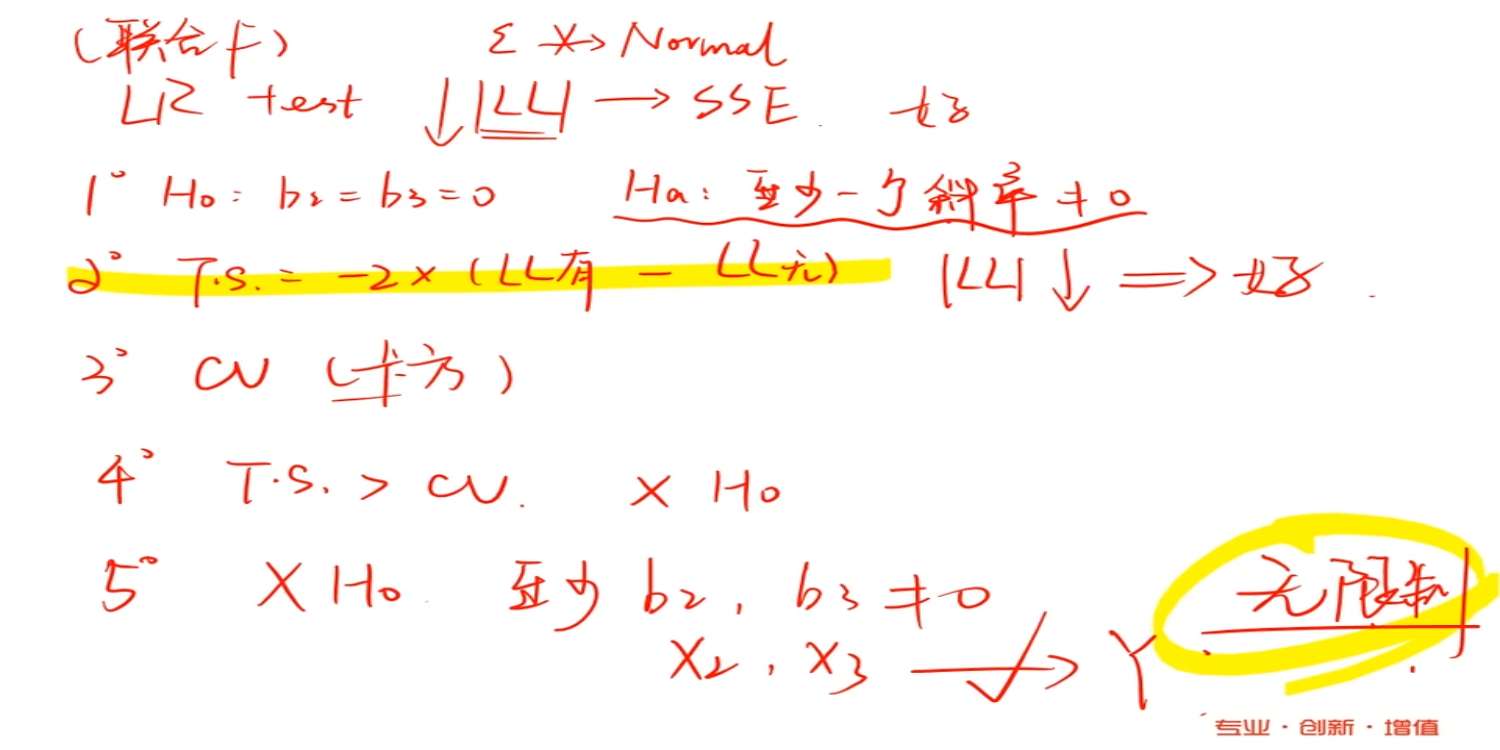 (联合卡) ε ×→ Normal
LR test ↓|LL| → SSE. 好
1° H₀: b₂ = b₃ = 0 Ha: 至少一个斜率 ≠ 0
2° T.S. = -2 × (LL有 - LL无) |LL| ↓ => 好.
3° CV (卡方)
4° T.S. > CV. × H₀
5° × H₀. 至少 b₂, b₃ ≠ 0 无限制
X₂, X₃ → Y
专业·创新·增值